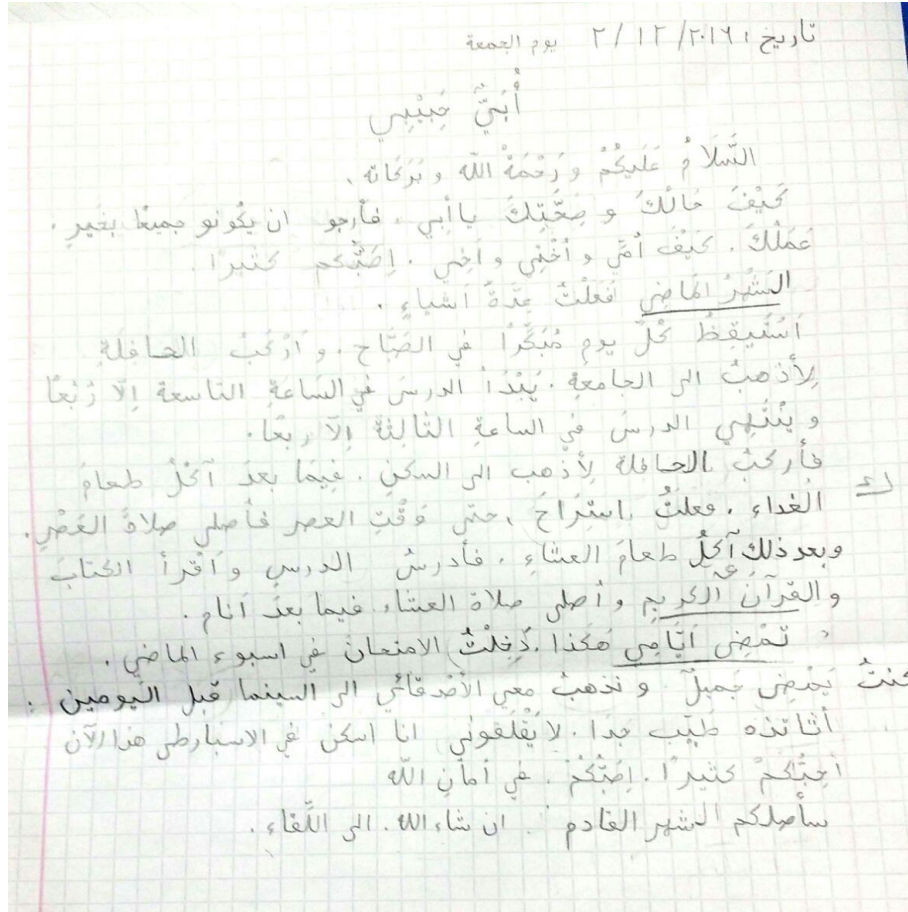 تاريخ : ٢٠١٦/ ١٢ / ٢ يوم الجمعة
أُبَيَّ حَبِيْبِي
السَّلَامُ عَلَيكُمْ وَرَحْمَةُ اللّه وَبَرَكَاته .
كَيْفَ حَالُكَ وَ صِحَّتِكَ ياأبي . فأرجو ان يكُونو جميعًا بِخَيرٍ .
عَمَلُكَ . كَيْفَ أُمِّي وَ أُخْتِي وَ أَخِي . كثيرًا
الشَهْرُ المَاضِي فَعَلْتُ عِدَّةَ اَشياءٍ .
اَسْتَيقِظُ كُلَّ يوم مُبَكِّرًا فِي الصَّبَّاحِ . و اَرْكَبُ الحافِلةِ
لِأذهبُ الى الجامعةِ . يَبْدَأُ الدرسَ في السَاعةِ التاسعة اِلّا رُبْعًا
وَ يَنْتَهِي الدرسَ في الساعةِ الثَالِثَةِ اِلّا ربعًا .
فأركبُ الحافلة لِأذهب الى السكنِ . فِيمَا بعدَ آكُلُ طعامَ
الغداء . فعلتُ اِسْتِرَاحَ ، حتى وَقْتِ العصر فأصلي صلاةَ العَصْرِ . ك
وبعد ذلك آكُلُ طعامَ العشاءِ . فأدرسُ الدرسي وَ اَقْرأُ الكتابَ
و القرآنَ الكريمِ و أُصلي صلاة العشاء فيما بعدَ اَنام .
تَمْضِي اَيَّامِي هكذا . دَخِلْتُ الامتحان في اسبوء الماضي .
كنتُ يَمْضِي جَمِيلً و نذهبُ معي الأصْدقائي الى السينما قبل اليومين .
أثاتذه طيِّب جدا . لا يَقْلقوني انا اسكن في الاسبارطى هذا الآن
اُحِبُّكمْ كثيرًا . في أمَانِ اللّه
سأصلكم الشهر القادم . ان شاء الله . الى اللِّقاءِ .